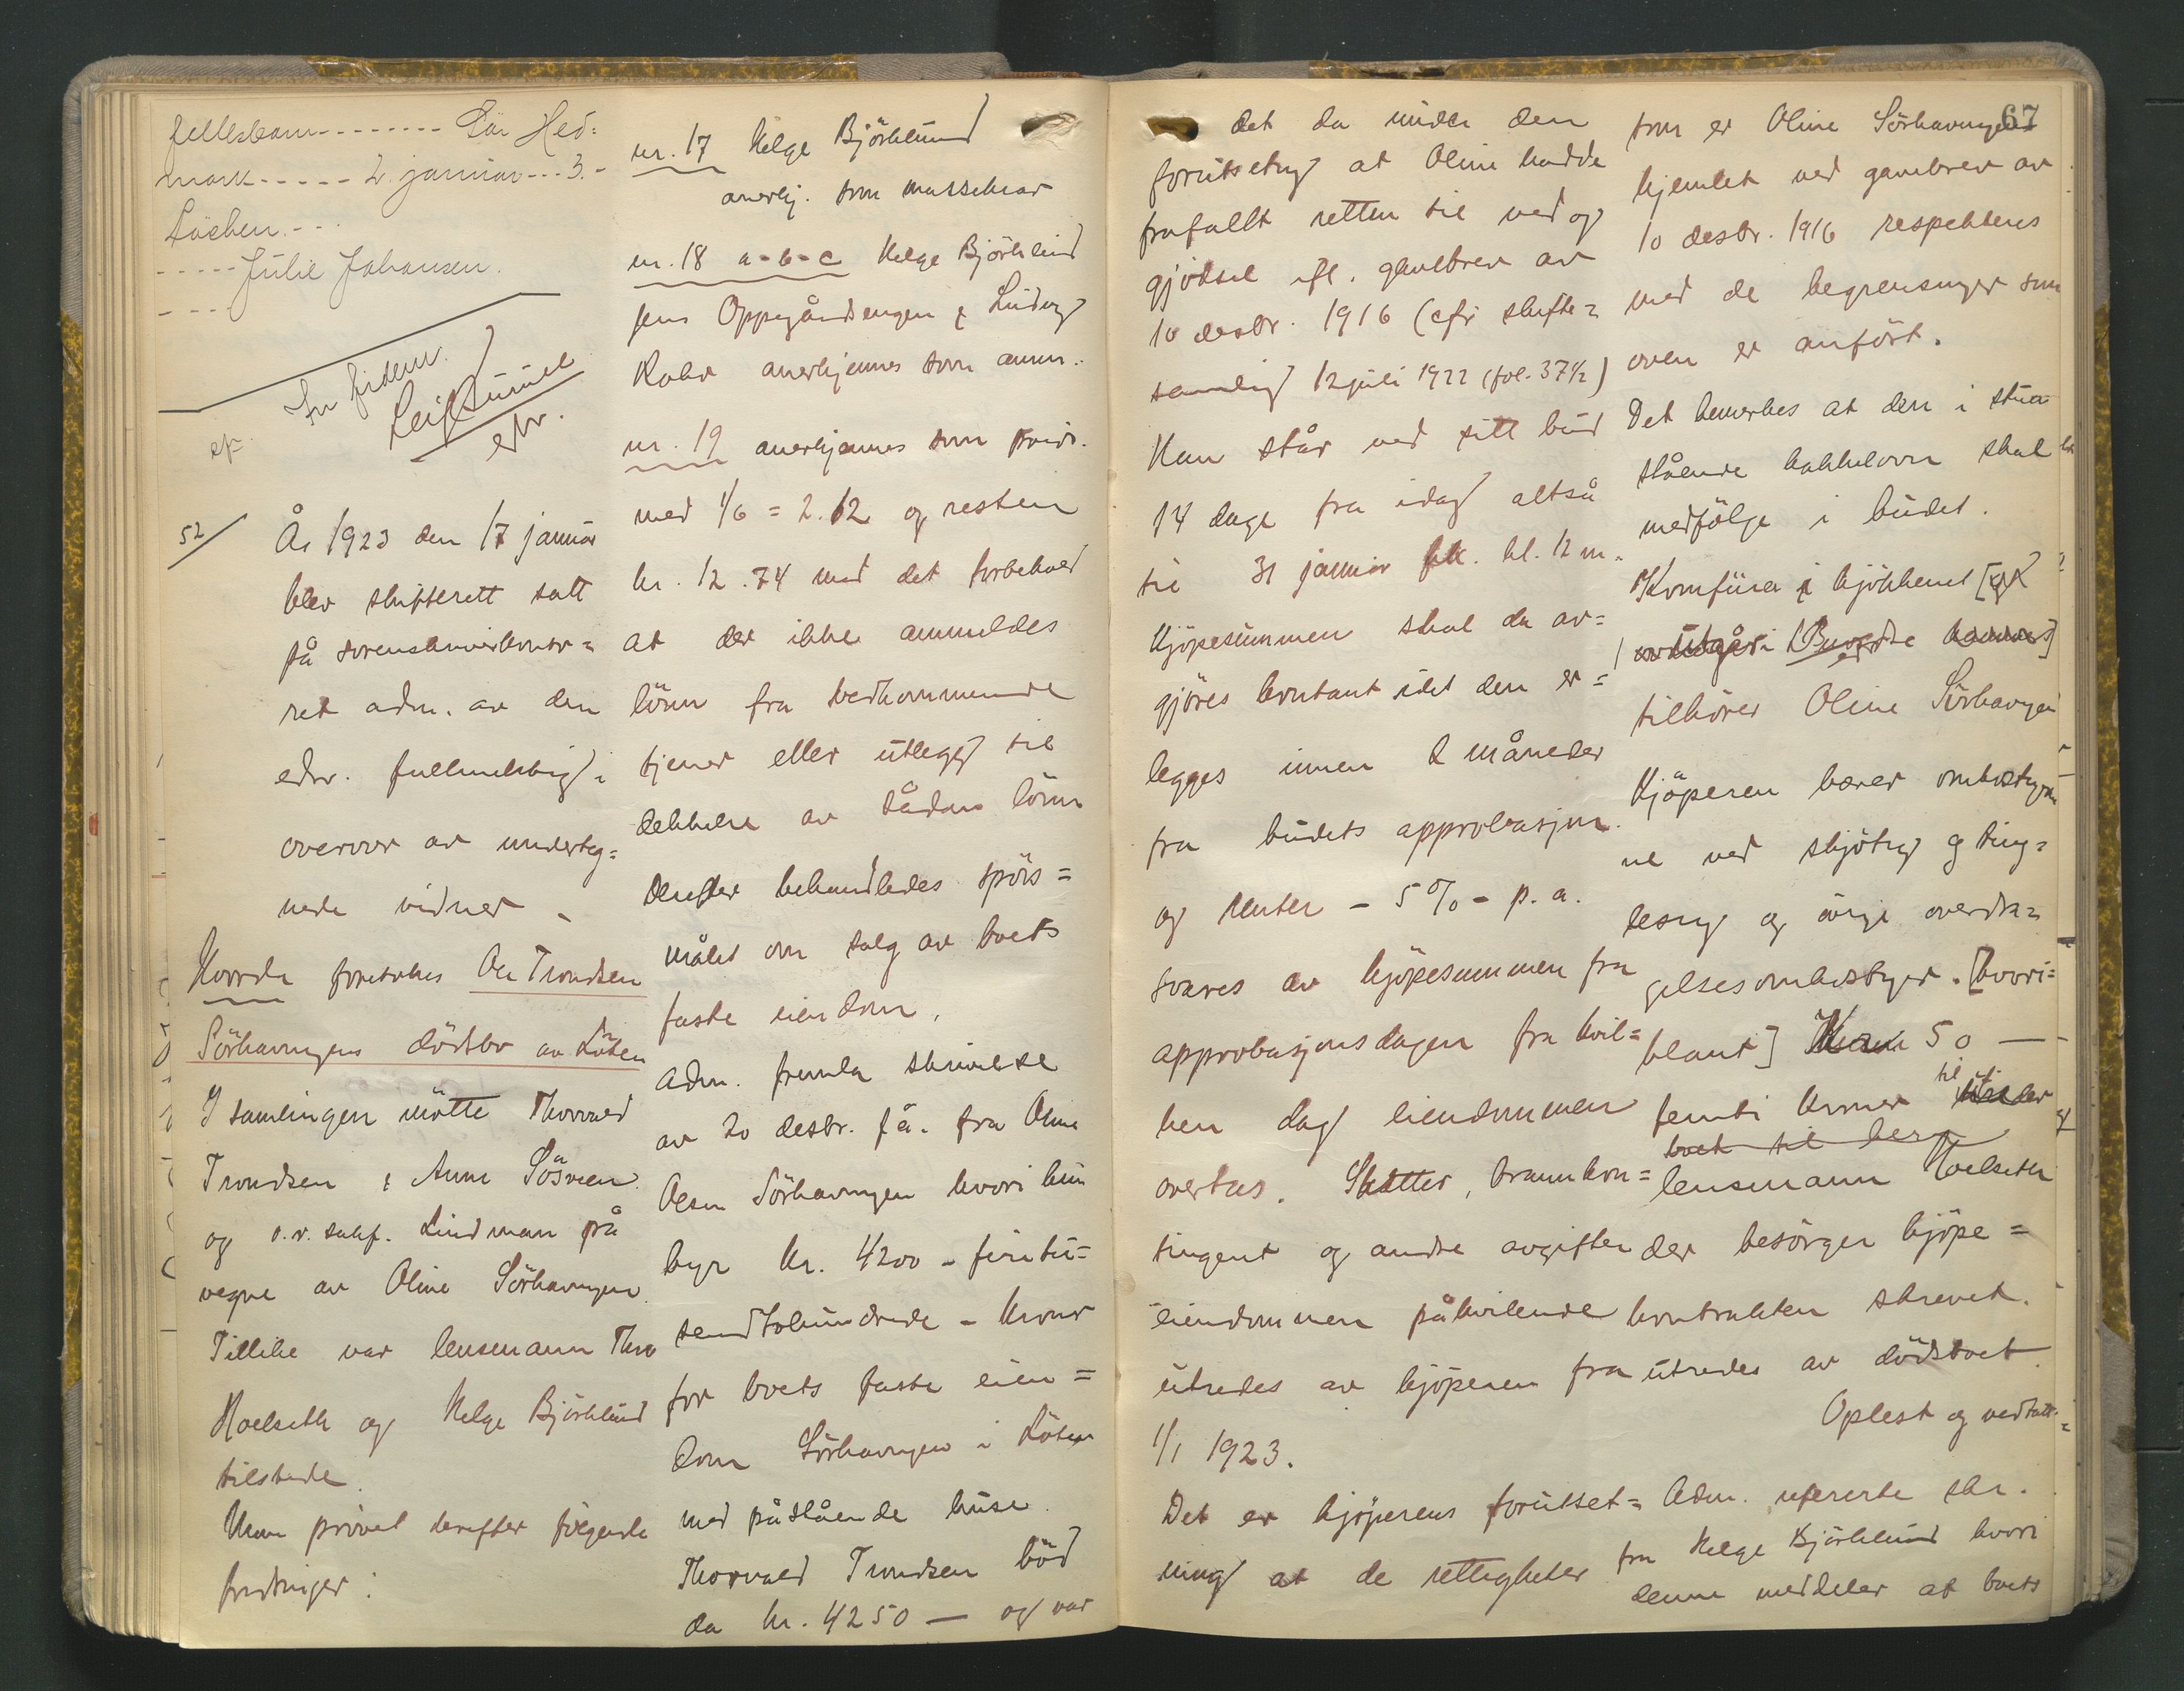 fellesbarn - - - - - - - - Sör Hed=
mark - - - - - 2. januar - - - 3. -
Löchen. - - -
- - - - - Julie Johansen.
- - - -
In fidem.
ef.
efm.
52/
År 1923 den 17 januar
blev skifterett satt
på sorenskriverkonto=
ret adm. av den
edsv. fullmektig i
overvær av underteg=
nede vidner -
Hvorda foretokes Ole Trondsen
Sörhavngens dödsbo av Löten
I samlingen mötte Thorvald
Trondsen & Anne Sösveen
og o.r. sakf. Lindman på
vegne av Oline Sörhavngen.
Tillike var lensmann Thv
Hoelseth og Helge Björklund
tilstede.
Man prövet derefter fölgende
fordringer:
nr. 17 Helge Björklund
anerkj. som massekrav
nr. 18 a - b - c Helge Björklund
Jens Oppegårdsengen & Ludvig
anerkjennes som anm.
nr. 19 anerkjennes som privi.
med 1/6 = 2.12 og resten
kr. 12.74 med det forbehold
at der ikke anmeldes
lönn fra vedkommende
tjener eller utlegg til
dekkelse av sådan lönn
Derefter behandledes spörs=
målet om salg av boets
faste eiendom.
Adm. fremla skrivelse
av 20 desbr. f.å. fra Oline
Olsen Sörhavngen hvori hun
byr kr. 4200 - firetu=
sendtohundrede - kroner
for boets faste eien=
dom Sörhavngen i Löten
med påstående huse.
Thorvald Trondsen böd
da kr. 4250 — og var
67
det da under den
forutsetng at Oline hadde
frafallt retten til ved og
gjödsel ifl. gavebrev av
10 desbr. 1916 (cfr skifte=
samling 12 juli 1922 (fol. 37 1/2)
Han står ved sitt bud
14 dage fra idag altså
til 31 januar kl. 12 m.
Kjöpesummen skal da av=
gjöres kontant idet den er=
legges innen 2 måneder
fra budets approbasjon.
og renter - 5% - p. a.
svares av kjöpesummen fra
approbasjonsdagen fra hvil=
ken dag eiendommen
overtas. Skatter, brannkon=
tingent og andre avgifter
eiendommen påhvilende
utredes av kjöperen fra
1/1 1923.
Det er kjöperens forutset=
ning at de rettigheter
som er Oline Sörhavngen
hjemlet ved gavebrev av
10 desbr. 1916 respekteres
med de begrensninger som
oven er anfört.
Det bemerkes at den i stua
stående kakkelovn skal
medfölge i budet.
Komfuren i kjökkenet [og
tilhörer Oline Sörhavngen
Kjöperen bærer omkostngene
ne ved skjötng og ting=
lesng og övrige overdra=
gelsesomkostnger. [hvori=
blant] 50 —
femti kroner til
boet til ber
lensmann Hoelseth
der besörger kjöpe=
kontrakten skrevet.
utredes av dödsboet.
Oplest og vedtatt.
Adm. refererte skr.
fra Helge Björklund hvori
denne meddeler at boets